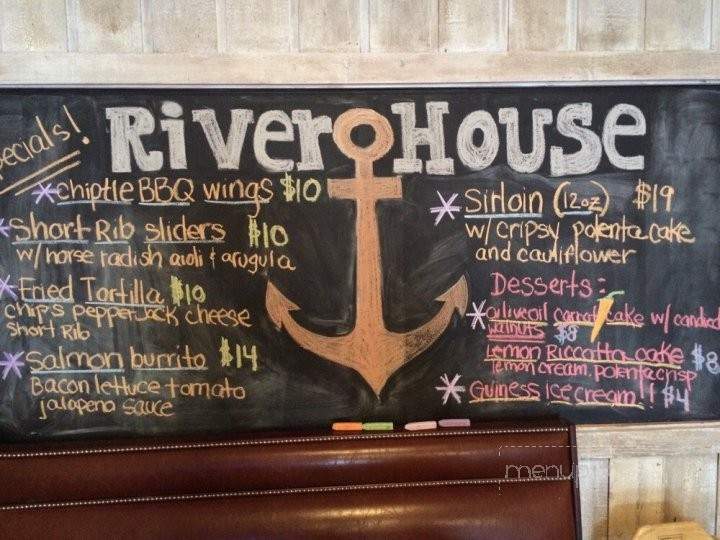 Specials!
River House
*chiptle BBQ wings $10
*Short Rib sliders $10
w/ horse radish aioli & arugula
*Fried Tortilla $10
chips pepperJack cheese
short Rib
*Salmon burrito $14
Bacon lettuce tomato
jalapeno sauce
*Sirloin (12oz) $19
w/ cripsy polenta cake
and cauliflower
Desserts:
*oliveoil carrot cake w/ candied
walnuts $8
Lemon Riccotta cake $8
lemon cream, polenta crisp
*Guiness ice cream!! $4
menu